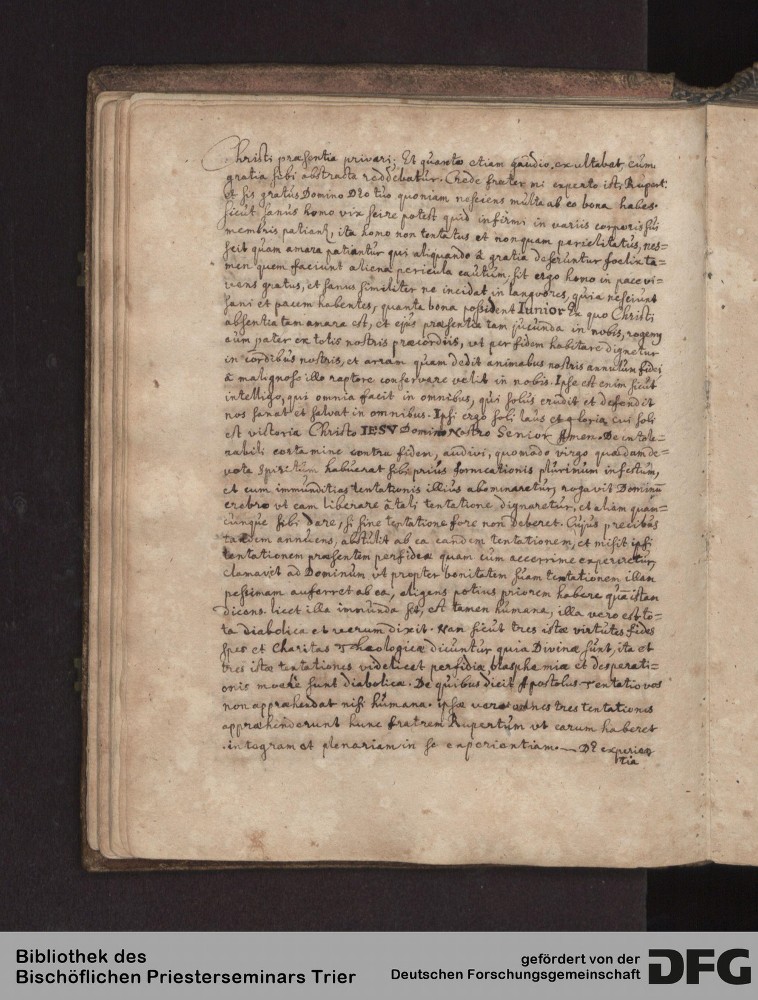 Christi præsentia privari; Et quanto etiam gaudio, exultabat cum
gratia sibi abstracta reddebatur. Crede frater mi experto isti Rupert:
Et sis gratus Domino Deo tuo quoniam nesciens multa ab eo bona habes.
sicut sanus homo vix scire potest quid infirmi in variis corporis sui
membris patiant, ita homo non tentatus et nonquam periclitatus, nes=
scit quam amara patiantur qui aliquando â gratia deseruntur foelix ta=
men quem faciunt aliena pericula cautum, sit ergo homo in pace vi=
vens gratus, et sanus similiter ne incidat in langvores, quia nesciunt
sani et pacem habentes, quanta bona possident Iunior Ex quo Christi
absentia tam amara est, et ejus præsentia tam jucunda in nobis, rogem9
eum pater ex totis nostris præcordiis, ut per fidem habitare dignetur
in cordibus nostris, et arram quam dedit animabus nostris annulum fidei
â maligno illo raptore conservare velit in nobis. Ipse est enim sicut
intelligo, qui omnia facit in omnibus, qui solus erudit et defendit
nos sanat et salvat in omnibus. Ipsi ergo soli laus et gloria, cui soli
est victoria Christo IESV Domino Nostro Senior Amen. De intole=
rabili certamine contra fidem, audivi, quomodo virgo quædam de=
vota Spiritum habuerat sibi prius fornicationis plurimum infestum,
et cum immunditias tentationis illius abominaretur, rogavit Dominū
crebro vt eam liberare â tali tentatione dignaretur, et aliam quam=
cunque sibi dare, si sine tentatione fore non deberet. Cujus precibus
tandem annuens, abstulit ab ea eandem tentationem, et misit ipsi
tentationem præsentem perfidiæ quam cum acerrime experiretur,
clamavit ad Dominum vt propter bonitatem suam tentationem illam
pessimam auferret ab ea, eligens potius priorem habere quā istan
dicens. licet illa immunda sit, Est tamen humana, illa vero est to=
ta diabolica et verum dixit. Nam sicut tres istæ virtutes fides
spes et Charitas Theologicæ dicuntur quia Divinæ sunt, ita et
tres istæ tentationes videlicet perfidiæ blasphemiæ et desperati=
onis mere sunt diabolicæ. De quibus dicit Apostolus Tentatio vos
non appræhendat nisi humana. ipsæ vero omnes tres tentationes
appræhenderunt hunc fratrem Rupertum vt earum haberet
integram et plenariam in se experientiam. De experien
tia
Bibliothek des
Bischöflichen Priesterseminars Trier
gefördert von der
Deutschen Forschungsgemeinschaft
DFG